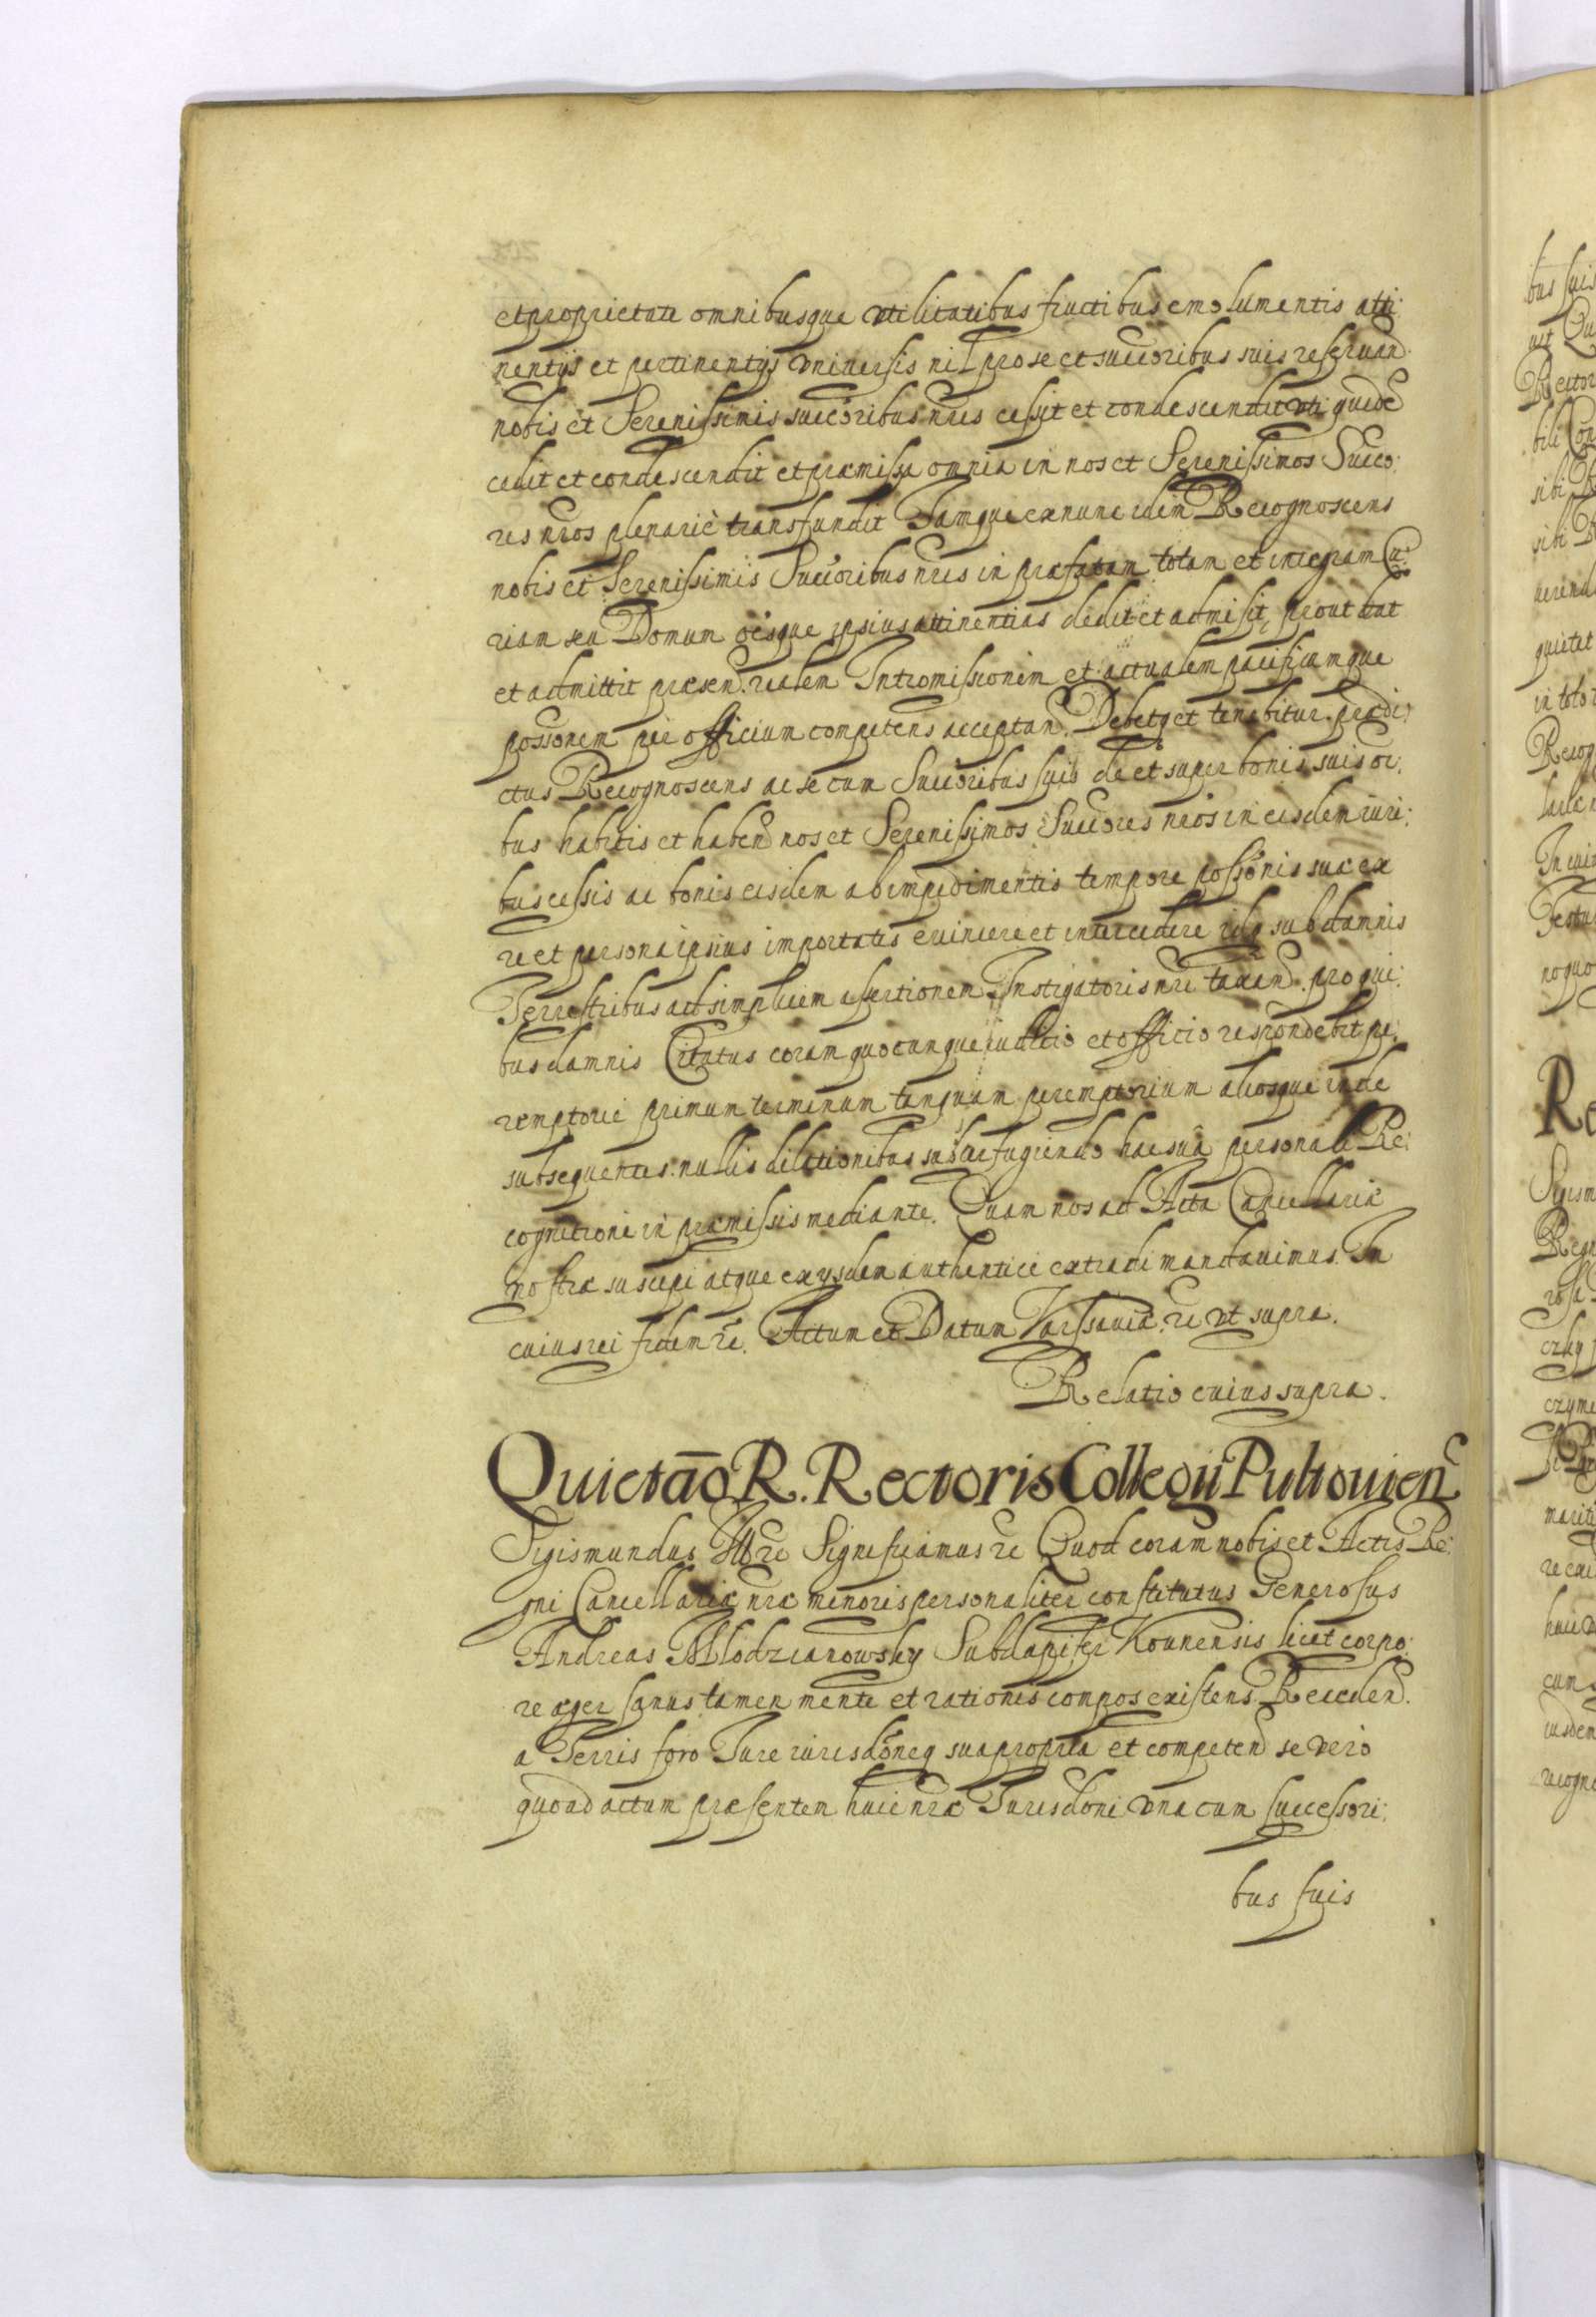 et proprietate omnibusque vtilitatibus fructibus emolumentis atti:
nentijs et pertinentijs vniuersis nil pro se et succoribus suis reseruand.
nobis et Serenissimis succoribus nris cessit et condescendit vti quidē
cedit et condescendit et præmissa omnia in nos et Serenissimos Succo:
res nros plenariè transfundit Iamque ex nunc idem Recognoscens
nobis et Serenissimis Succoribus nris in præfatam totam et integram Cu:
riam seu Domum oēsque ipsius attinentias dedit et admisit, prout dat
et admittit præsen. realem Intromissionem et actualem pacificamque
possonem per officium competens acceptan. Debet et tenebitur prædi:
ctus Recognoscens ac secum Succoribus suis de et super bonis suis oī:
bus habitis et haben nos et Serenissimos Succores nros in eisdem iuri:
bus cessis ac bonis eisdem ab impedimentis tempore possonis suæ ex
re et persona ipsius importatis euincere et intercedere idq sub damnis
Terrestribus ad simplicem assertionem Instigatoris nri taxan. pro qui:
bus damnis Citatus coram quocunque iudicio et officio respondebit pe:
remptorie primum terminum tanquam peremptorium aliosque inde
subsequentes nullis dilationibus subterfugiendo hac sua personali Re:
cognitione in præmissis mediante. Quam nos ad Acta Cancellariæ
nostræ suscepi atque ex ijsdem authentice extradi mandauimus. In
cuius rei fidem rē. Actum et Datum Varsauiæ. rē vt supra.
Relatio cuius supra.
Quietaō R. Rectoris Collegij Pultouien
Sigismundus IIIrē Significamus rē Quod coram nobis et Actis Re:
gni Cancellariæ nræ minoris personaliter constitutus Generosus
Andreas Mlodzianowsky Subdapifer Kounensis licet corpo:
re æger sanus tamen mente et rationis compos existens Receden.
a Terris foro Iure iurisdōneq sua propria et competen se vero
quoad actum præsentem huic nræ Iurisdōni vna cum successori:
bus suis